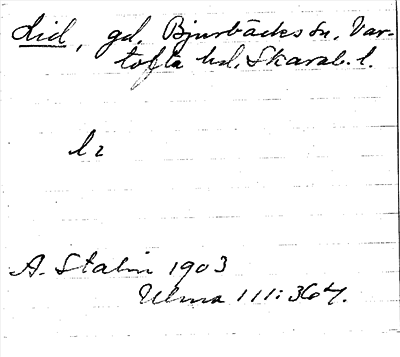 Lid, gd. Bjurbäcks sn. Var-
tofta hd. Skarab. l.
li
A. Stalin 1903
Ulma 111:364.